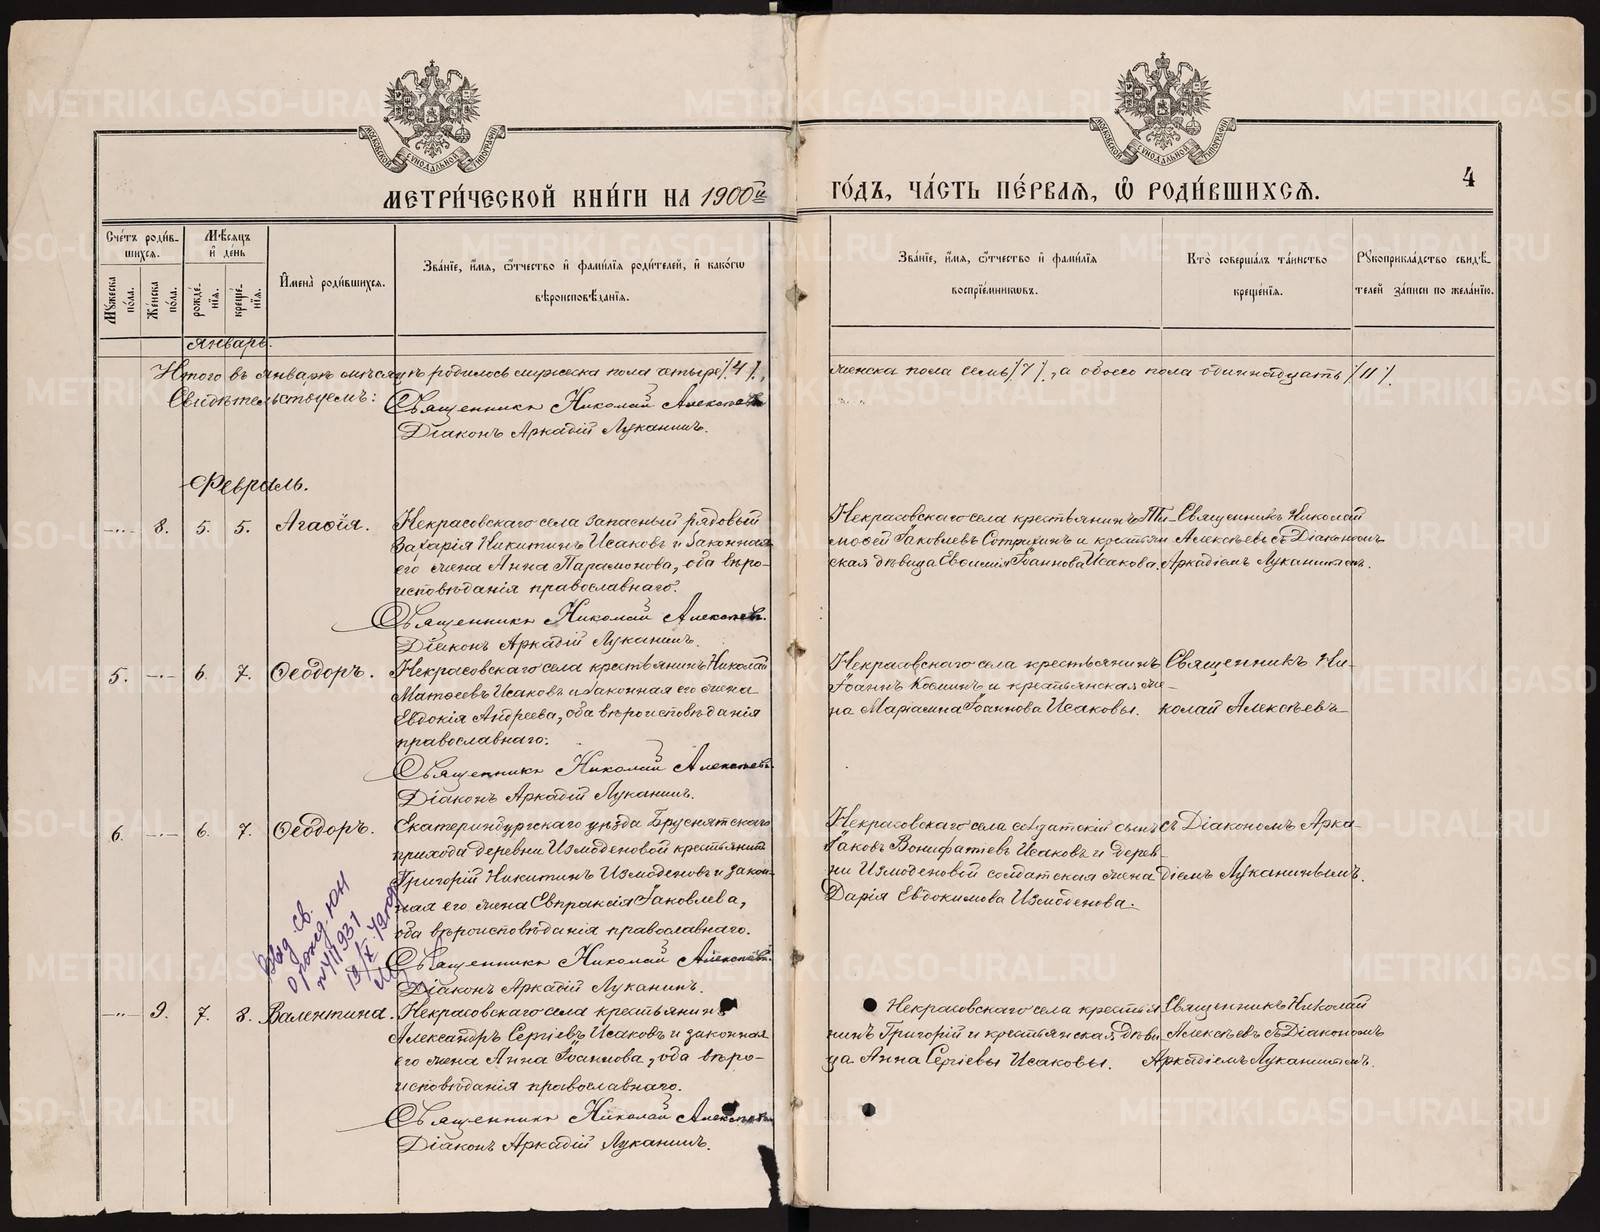 МЕТРИ́ЧЕСКОЙ КНИ́ГИ НА 1900й ГО́ДЪ, ЧА́СТЬ ПЕ́РВАЯ, Ѿ РОДИ́ВШИХСЯ.
4
Сче́тъ роди́вшихся.
Му́жеска по́ла.
Же́нска по́ла.
Мѣ́сяцъ и̂ де́нь
рожде́нїя.
креще́нїя.
И̂мена̀ роди́вшихся.
Зва́нїе, и̂́мя, ѻ̂́тчество и̂ фами́лїя роди́телей, и̂ како́гѡ вѣроисповѣ́данїя.
Зва́нїе, и̂́мя, ѻ̂́тчество и̂ фами́лїя воспрїе́мниковъ.
Кто̀ соверша́лъ та́инство креще́нїя.
Рꙋкоприкла́дство свидѣ́телей за́писи по жела́нїю.
Январь.
Итого въ Январѣ мѣсяцѣ родилось мужска пола четыре /4/,
женска пола семь /7/, а обоего пола одиннадцать /11/.
Свидѣтельствуемъ: Священникъ Николай Алексѣевъ
Діаконъ Аркадій Луканинъ.
Февраль.
8. 5. 5. Агафія.
Некрасовскаго села запасный рядовый
Захарія Никитинъ Исаковъ и законная
его жена Анна Парамонова, оба вѣро-
исповѣданія православнаго.
Священникъ Николай Алексѣевъ.
Діаконъ Аркадій Луканинъ.
Некрасовскаго села крестьянинъ Ти-
мофей Іаковлевъ Сотрихинъ и крестьян
ская дѣвица Евфимія Іоаннова Исакова.
Священникъ Николай
Алексѣевъ съ Діакономъ
Аркадіемъ Луканинымъ.
5. 6. 7. Ѳеодоръ.
Некрасовскаго села крестьянинъ Николай
Матѳеевъ Исаковъ и законная его жена
Евдокія Андреева, оба вѣроисповѣданія
православнаго.
Священникъ Николай Алексѣевъ.
Діаконъ Аркадій Луканинъ.
Некрасовскаго села крестьянинъ
Іоаннъ Косминъ и крестьянская же-
на Маріамна Іоаннова Исаковы.
Священникъ Ни-
колай Алексѣевъ
6. 6. 7. Ѳеодоръ.
Екатеринбургскаго уѣзда Бруснятскаго
прихода деревни Измоденовой крестьянинъ
Григорій Никитинъ Измоденовъ и закон-
ная его жена Евпраксія Іаковлева,
оба вѣроисповѣданія православнаго.
Священникъ Николай Алексѣевъ.
Діаконъ Аркадій Луканинъ.
Некрасовскаго села солдатскій сынъ
Іаковъ Вонифатіевъ Исаковъ и дерев-
ни Измоденовой солдатская жена
Дарія Евдокимова Измоденова.
съ Діакономъ Арка-
діемъ Луканинымъ.
Выд. св.
о рожд.
9. 7. 8. Валентина.
Некрасовскаго села крестьянинъ
Александръ Сергіевъ Исаковъ и законная
его жена Анна Іоаннова, оба вѣро-
исповѣданія православнаго.
Священникъ Николай Алексѣевъ
Діаконъ Аркадій Луканинъ.
Некрасовскаго села крестья
нинъ Григорій и крестьянская дѣви-
ца Анна Сергіевы Исаковы.
Священникъ Николай
Алексѣевъ съ Діакономъ
Аркадіемъ Луканинымъ.
METRIKI.GASO-URAL.RU